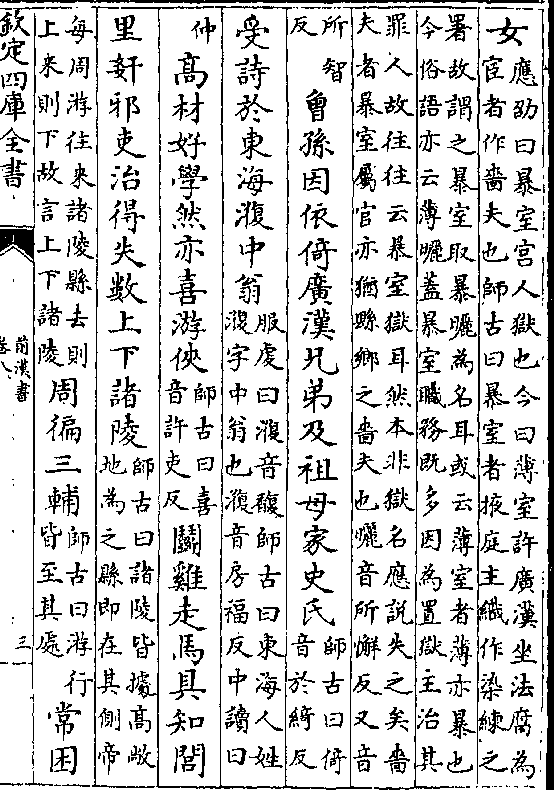 女應劭曰暴室宫人獄也今曰薄室許廣漢坐法腐為
宦者作嗇夫也師古曰暴室者掖庭主織作染練之
署故謂之暴室取暴曬為名耳或云薄室者薄亦暴也
今俗語亦云薄曬蓋暴室職務既多因為置獄主治其
罪人故往往云暴室獄耳然本非獄名應說失之矣嗇
夫者暴室屬官亦猶縣鄉之嗇夫也曬音所懈反又音
所智反曾孫因依倚廣漢兄弟及祖母家史氏師古曰倚音於綺反
受詩於東海澓中翁服虔曰澓音馥師古曰東海人姓澓字中翁也澓音房福反中讀曰
仲高材好學然亦喜游俠師古曰喜音許吏反鬭雞走馬具知閭
里奸邪吏治得失數上下諸陵師古曰諸陵皆據高敞地為之縣即在其側帝
每周游往来諸陵縣去則上来則下故言上下諸陵周徧三輔師古曰游行皆至其處常困
欽定四庫全書
前漢書
卷八
三